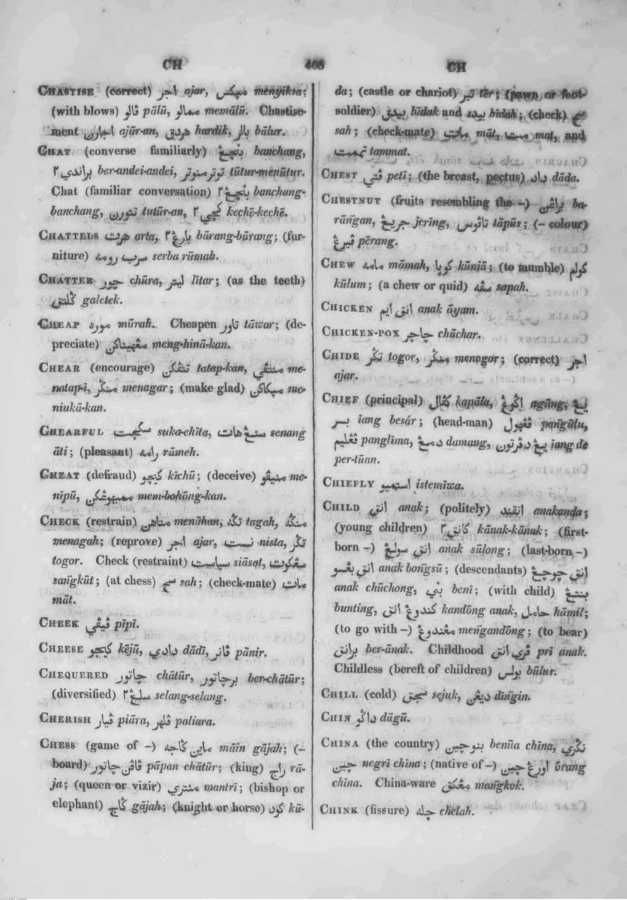 CH 405 CH
CHASTISE (correct) اجر ajar, مڽيكس menyiksa;
(with blows) ڤالو pālū, ممالو memālū. Chastise-
ment اجارن ajār-an, هردق hardik, بالر bālur.
CHAT (converse familiarly) بنچڠ banchang,
براندي٢ ber-andei-andei, توترمنوتر tūtur-menūtur.
Chat (familiar conversation) بنچڠ٢ banchang-
banchang, تتورن tutūr-an, كچي٢ kechē-kechē.
CHATTELS هرت arta, بارڠ٢ bārang-bārang; (fur-
niture) سرب رومه serba rūmah.
CHATTER چور chūra, ليتر lītar; (as the teeth)
گلتق galetek.
CHEAP موره mūrah. Cheapen تاور tāwar; (de-
preciate) مڠهيناكن meng-hinā-kan.
CHEAR (encourage) تتفكن tatap-kan, منتڤي me-
natap-i, منگر menagar; (make glad) سكاكن
niukā-kan.
CHEARFUL سكچيت suka-chīta, سنڠ هات senang
āti; (pleasant) رامه rāmeh.
CHEAT (defraud) كيچو kīchū; (deceive) منيڤو me-
nīpū, ممبوهڠكن mem-bohūng-kan.
CHECK (restrain) متاهن menāhan, تگه tagah, منگه
menagah; (reprove) اجر ajar, نيست nista, تگر
togor. Check (restraint) سياست siāsat, سڠكوت
sangkūt; (at chess) سه sah; (check-mate) مات
māt.
CHEEK ڤيڤي pīpī.
CHEESE كيجو kējū, دادي dādī, ڤانير pānir.
CHEQUERED چاتور chātūr, برچاتور ber-chātūr;
(diversified) سلڠ٢ selang-selang.
CHERISH ڤيار piāra, ڤليهر paliara.
CHESS (game of –) ماين گاجه māin gājah; (–
board) ڤاڤن چاتور pāpan chātūr; (king) راج rā-
ja; (queen or vizir) منتري mantrī; (bishop or
elephant) گاجه gājah; (knight or horse) كود kū-
da; (castle or chariot) تير tēr; (pawn or foot-
soldier) بيدق bīdak and بيده bīdah; (check) سه
sah; (check-mate) مات māt, مت mat, and
تمت tammat.
CHEST ڤتي petī; (the breast, pectus) داد dāda.
CHESTNUT (fruits resembling the –) براڠن ba-
rāngan, جريڠ jerīng, تاڤوس tāpūs; (– colour)
ڤيرڠ pērang.
CHEW مامه māmah, كوپا kūnjā; (to mumble) كولم
kūlum; (a chew or quid) سڤه sapah.
CHICKEN انق ايم anak āyam.
CHICKEN-POX چاچر chāchar.
CHIDE تگر togor, منگر menogor; (correct) اجر
ajar.
CHIEF (principal) كڤال kapāla, اگوڠ agūng, يڠ
بسر iang besár; (head-man) ڤڠهولو pangūlu,
ڤڠليم panglīma, دمڠ damang, يڠ دڤرتون iang de
per-tūan.
CHIEFLY استميو istemiwa.
CHILD انق anak; (politely) انقند anakanda;
(young children) كانق٢ kānak-kānak; (first-
born –) انق سولڠ anak sūlong; (last-born –)
انق بڠسو anak bongsū; (descendants) انق چوچڠ
anak chūchong, بني benī; (with child) بنتڠ
bunting, كندوڠ انق kandōng anak, حامل hāmil;
(to go with –) مڠندوڠ mengandōng; (to bear)
برانق ber-ānak. Childhood ڤري انق prī ának.
Childless (bereft of children) بولر būlur.
CHILL (cold) سجق sejuk, ديڠن dīngin.
CHIN داگو dāgū.
CHINA (the country) بنوچين benūa china, نگري
چين negrī china; (native of –) اورڠ چين ōrang
china. China-ware مڠكق mangkok.
CHINK (fissure) چله chelah.